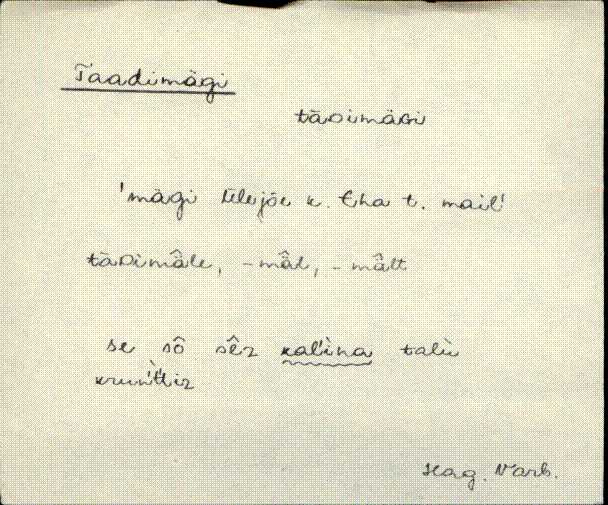 Taadimägi
tāDimäGi
'mägi Ülejõe k. Eha t. mail'
tāDimä̂le, -mä̂l, -mä̂lt
se sô sêz kal'ìna talù
krun't'tiz
Hag. Varb.